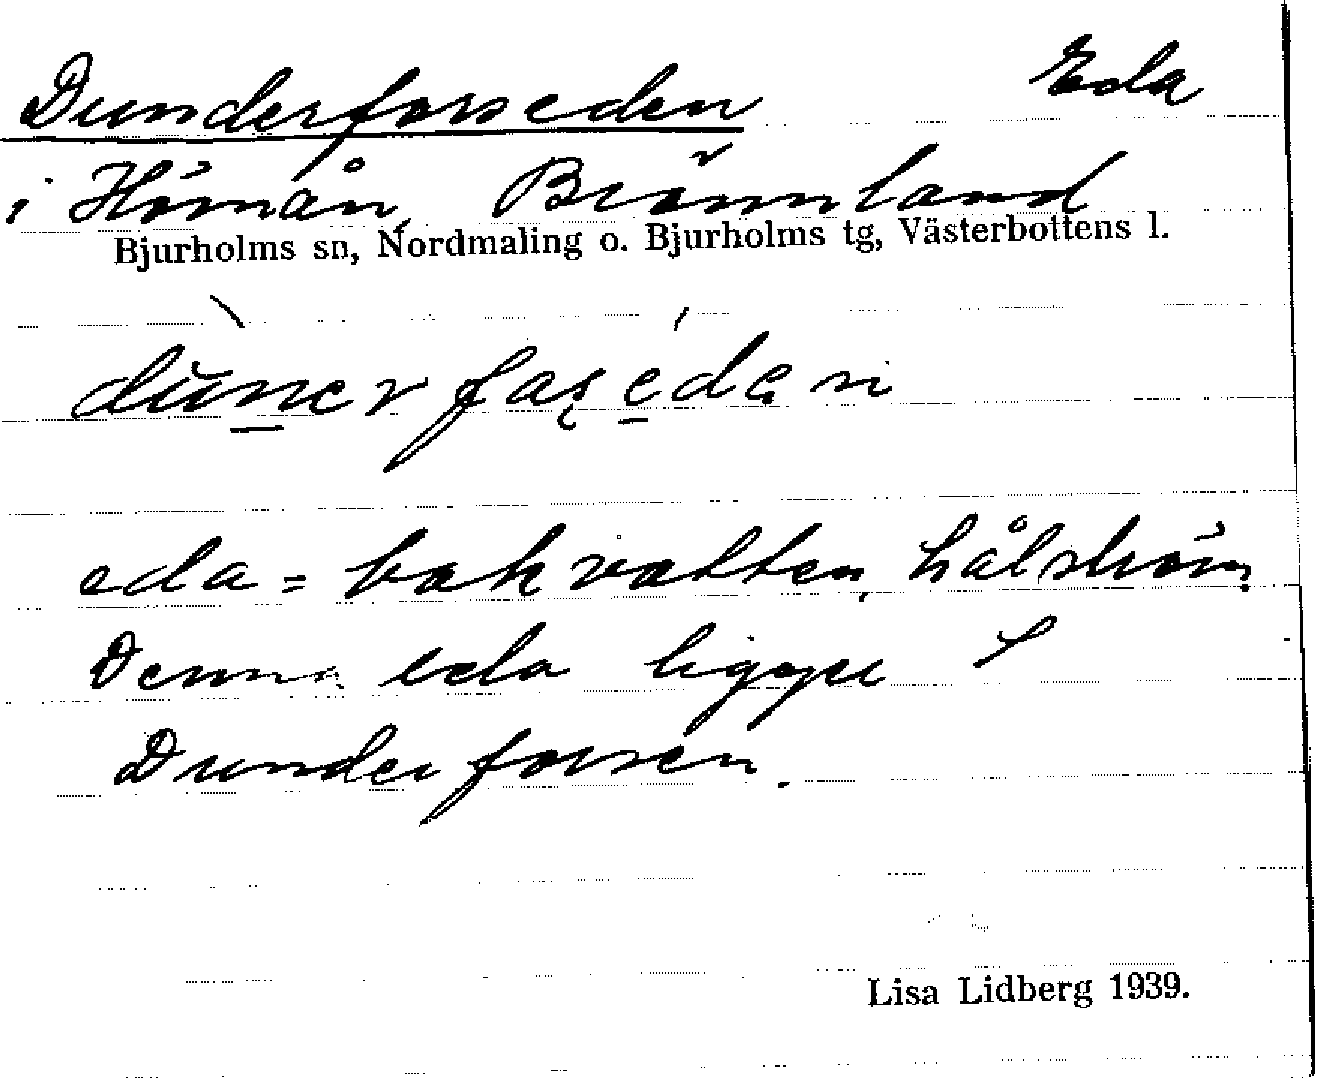 Dunderforseden Eda
i Hörnån, Brännland
Bjurholms sn, Nordmaling o. Bjurholms tg, Västerbottens l.
eda = bakvatten, hålström
Denna eda ligger i
Dunderforsen.
Lisa Lidberg 1939.